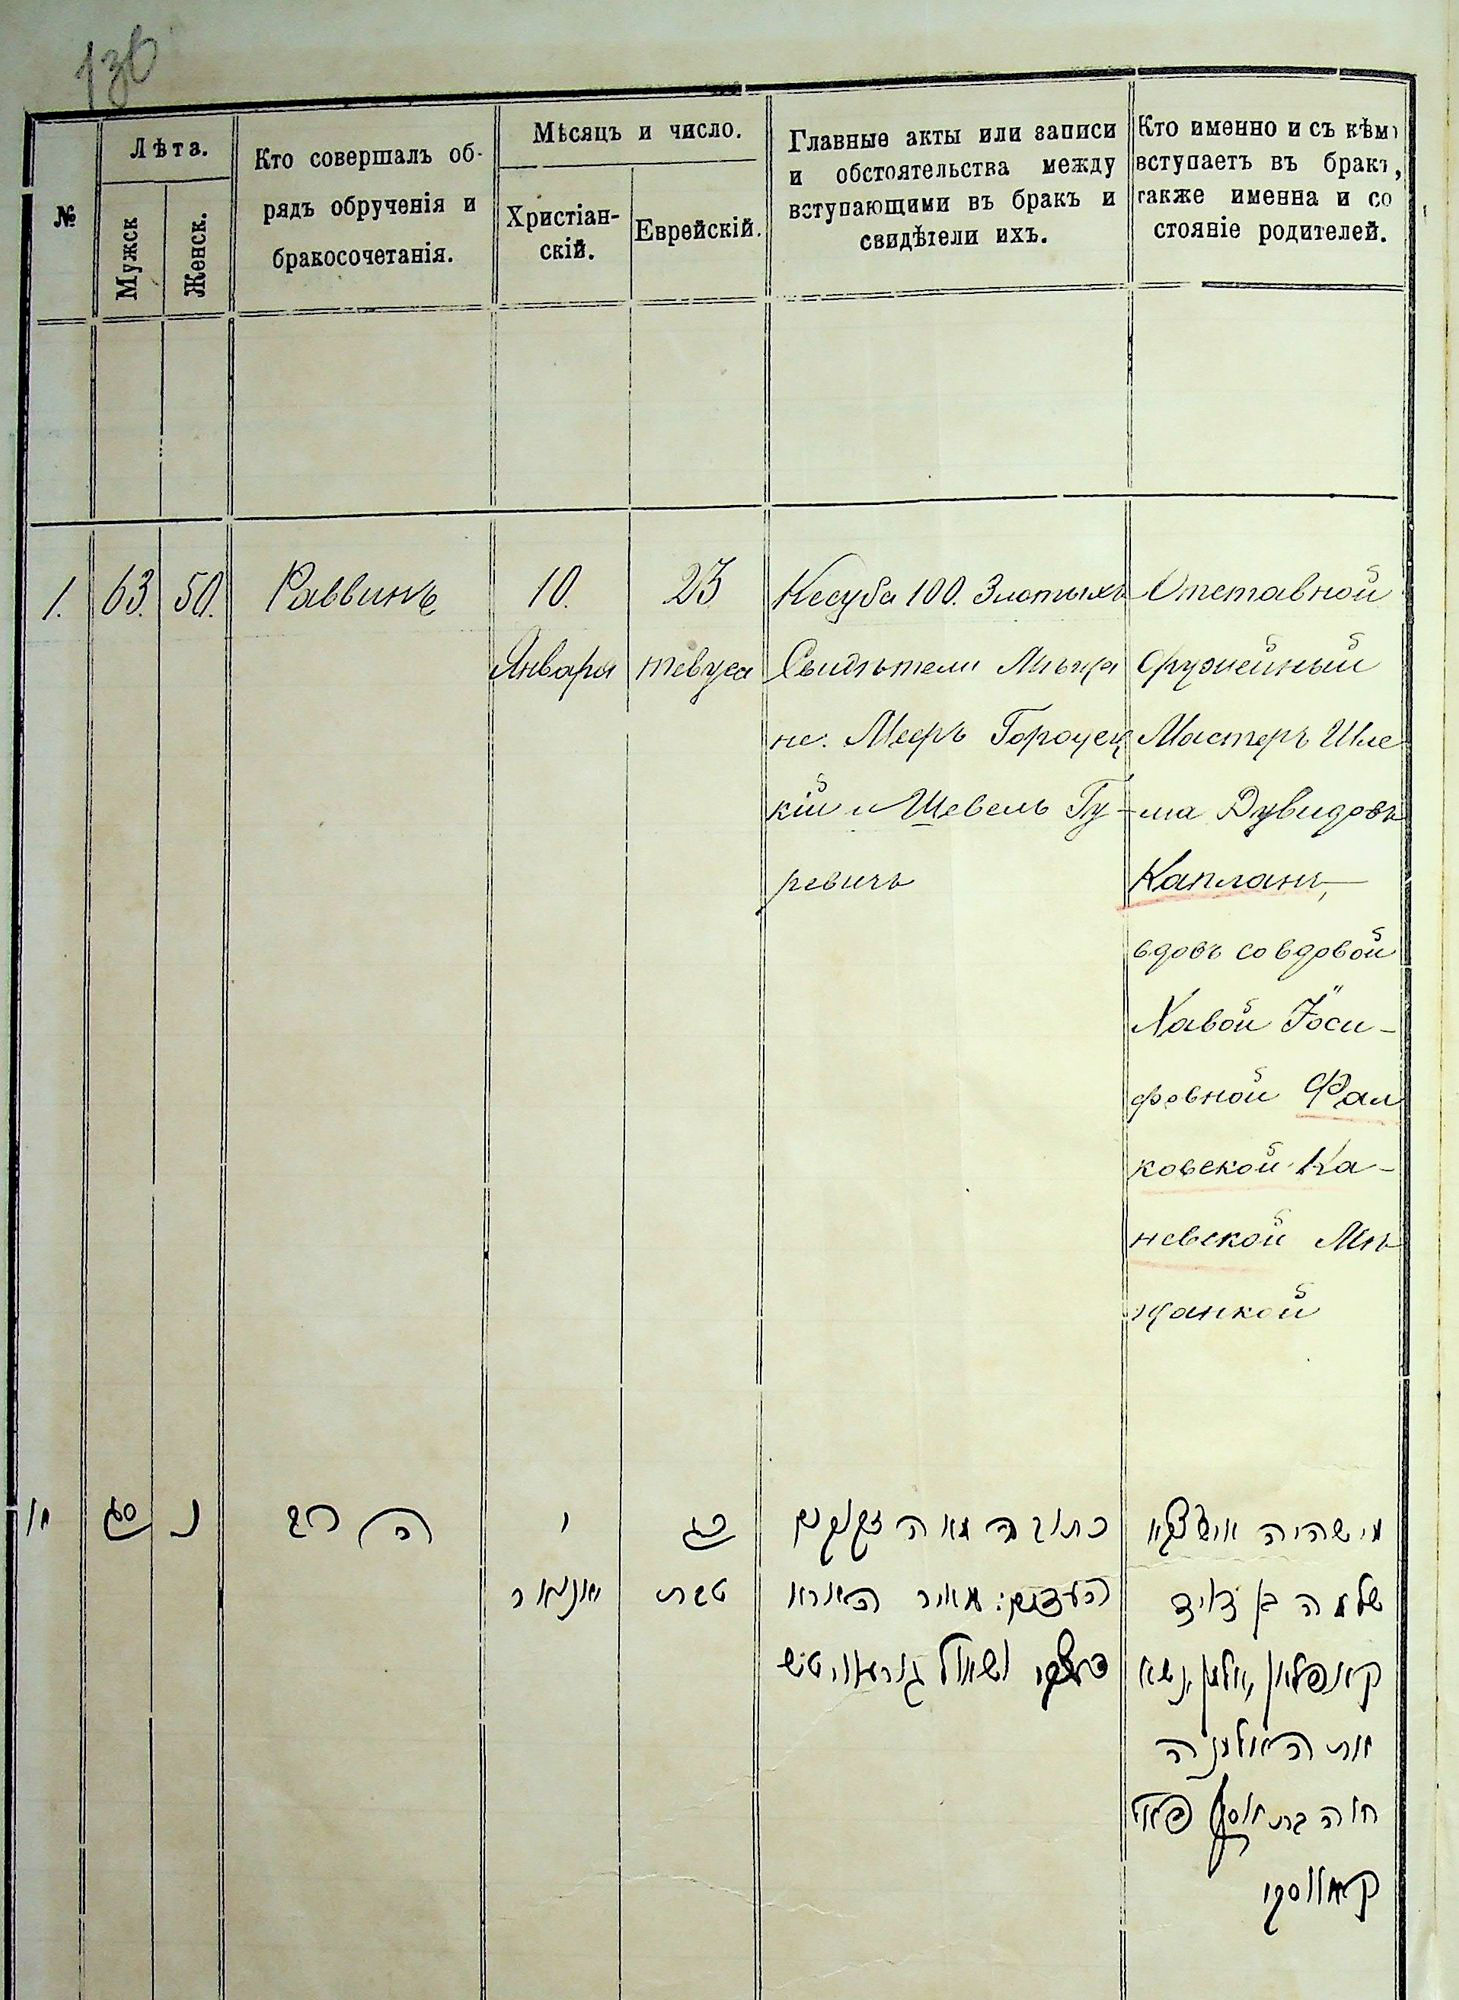 136
№
Лѣта.
Мужск
Женск.
Кто совершалъ об-
рядъ обрученія и
бракосочетанія.
Мѣсяцъ и число.
Христіан-
скій.
Еврейскій.
Главные акты или записи
и обстоятельства между
вступающими въ бракъ и
свидѣтели ихъ.
Кто именно и съ кѣмъ
вступаетъ въ бракъ,
также именна и со
стояніе родителей.
1.
63.
50.
Раввинъ
10.
Января
23
тевуса
Кесуба 100. Злотыхъ
Свидѣтели Мѣща
не. Мееръ Городец
кій и Шевель Гу-
ревичъ
Отставной
Оружейный
Мастеръ Шле
ма Дувидовъ
Капланъ,
вдовъ со вдовой
Хавой Іоси-
фовной Фал
ковской Ка-
невской Мѣ
щанкой
סג
נ
הרב
י
יאנואר
כג
טבת
כתובה מאה זקוקים
העדים: מאיר הארא
דעצקי ושאול גורעוויטש
מי שהיה
שלמה בן דויד
קאפלאן, אלמן, נשא
את האלמנה
חוה בת יוסף פאל
קאווסקי